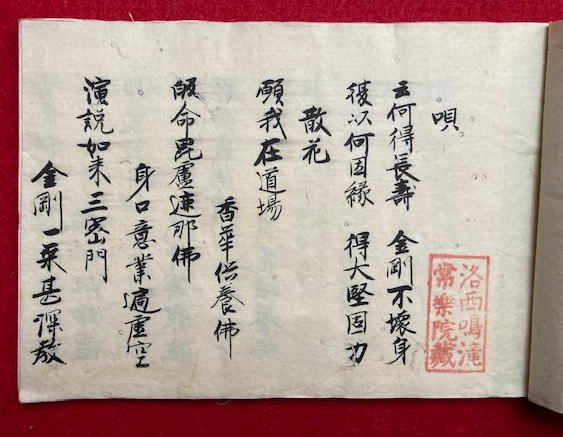 唄
云何得長壽　金剛不壞身
復以何因緣　得大堅固力
散花
願我在道場
香華供養佛
皈命毘盧遮那佛
身口意業遍虛空
演説如来三密門
金剛一乗甚深教
洛西鳴滝
常樂院藏